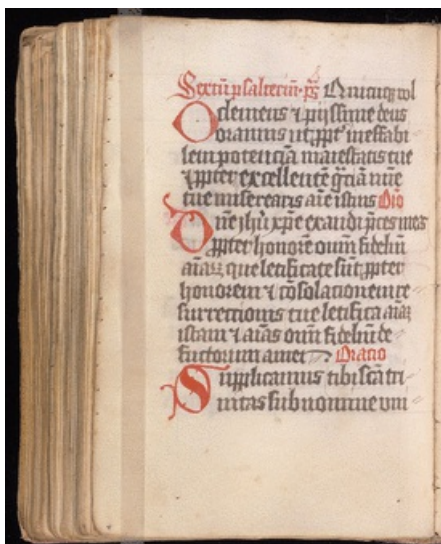 Sextū psalteriū · ps̄ Quicūq vol
O clemens ⁊ pijssime deus
oramus ut ꝓpt' ineffabi
lem potenciā maiestatis tue
⁊ ꝓpter excellentē grāciā
tue miserearis aīe istius Orō
Dn̄e ihū xp̄e exaudi p̄ces meas
ꝓpter honorē om̄ fidelīu
aīaꝝ que letificate sūt ꝓpter
honorem ⁊ cōsolacionem re
surrectionis tue letifica aīaꝫ
istam ⁊ aīas om̄ fideliū de
functorum amen Oratio
Supplicamus tibi scā tri
nitas sub nomine vni